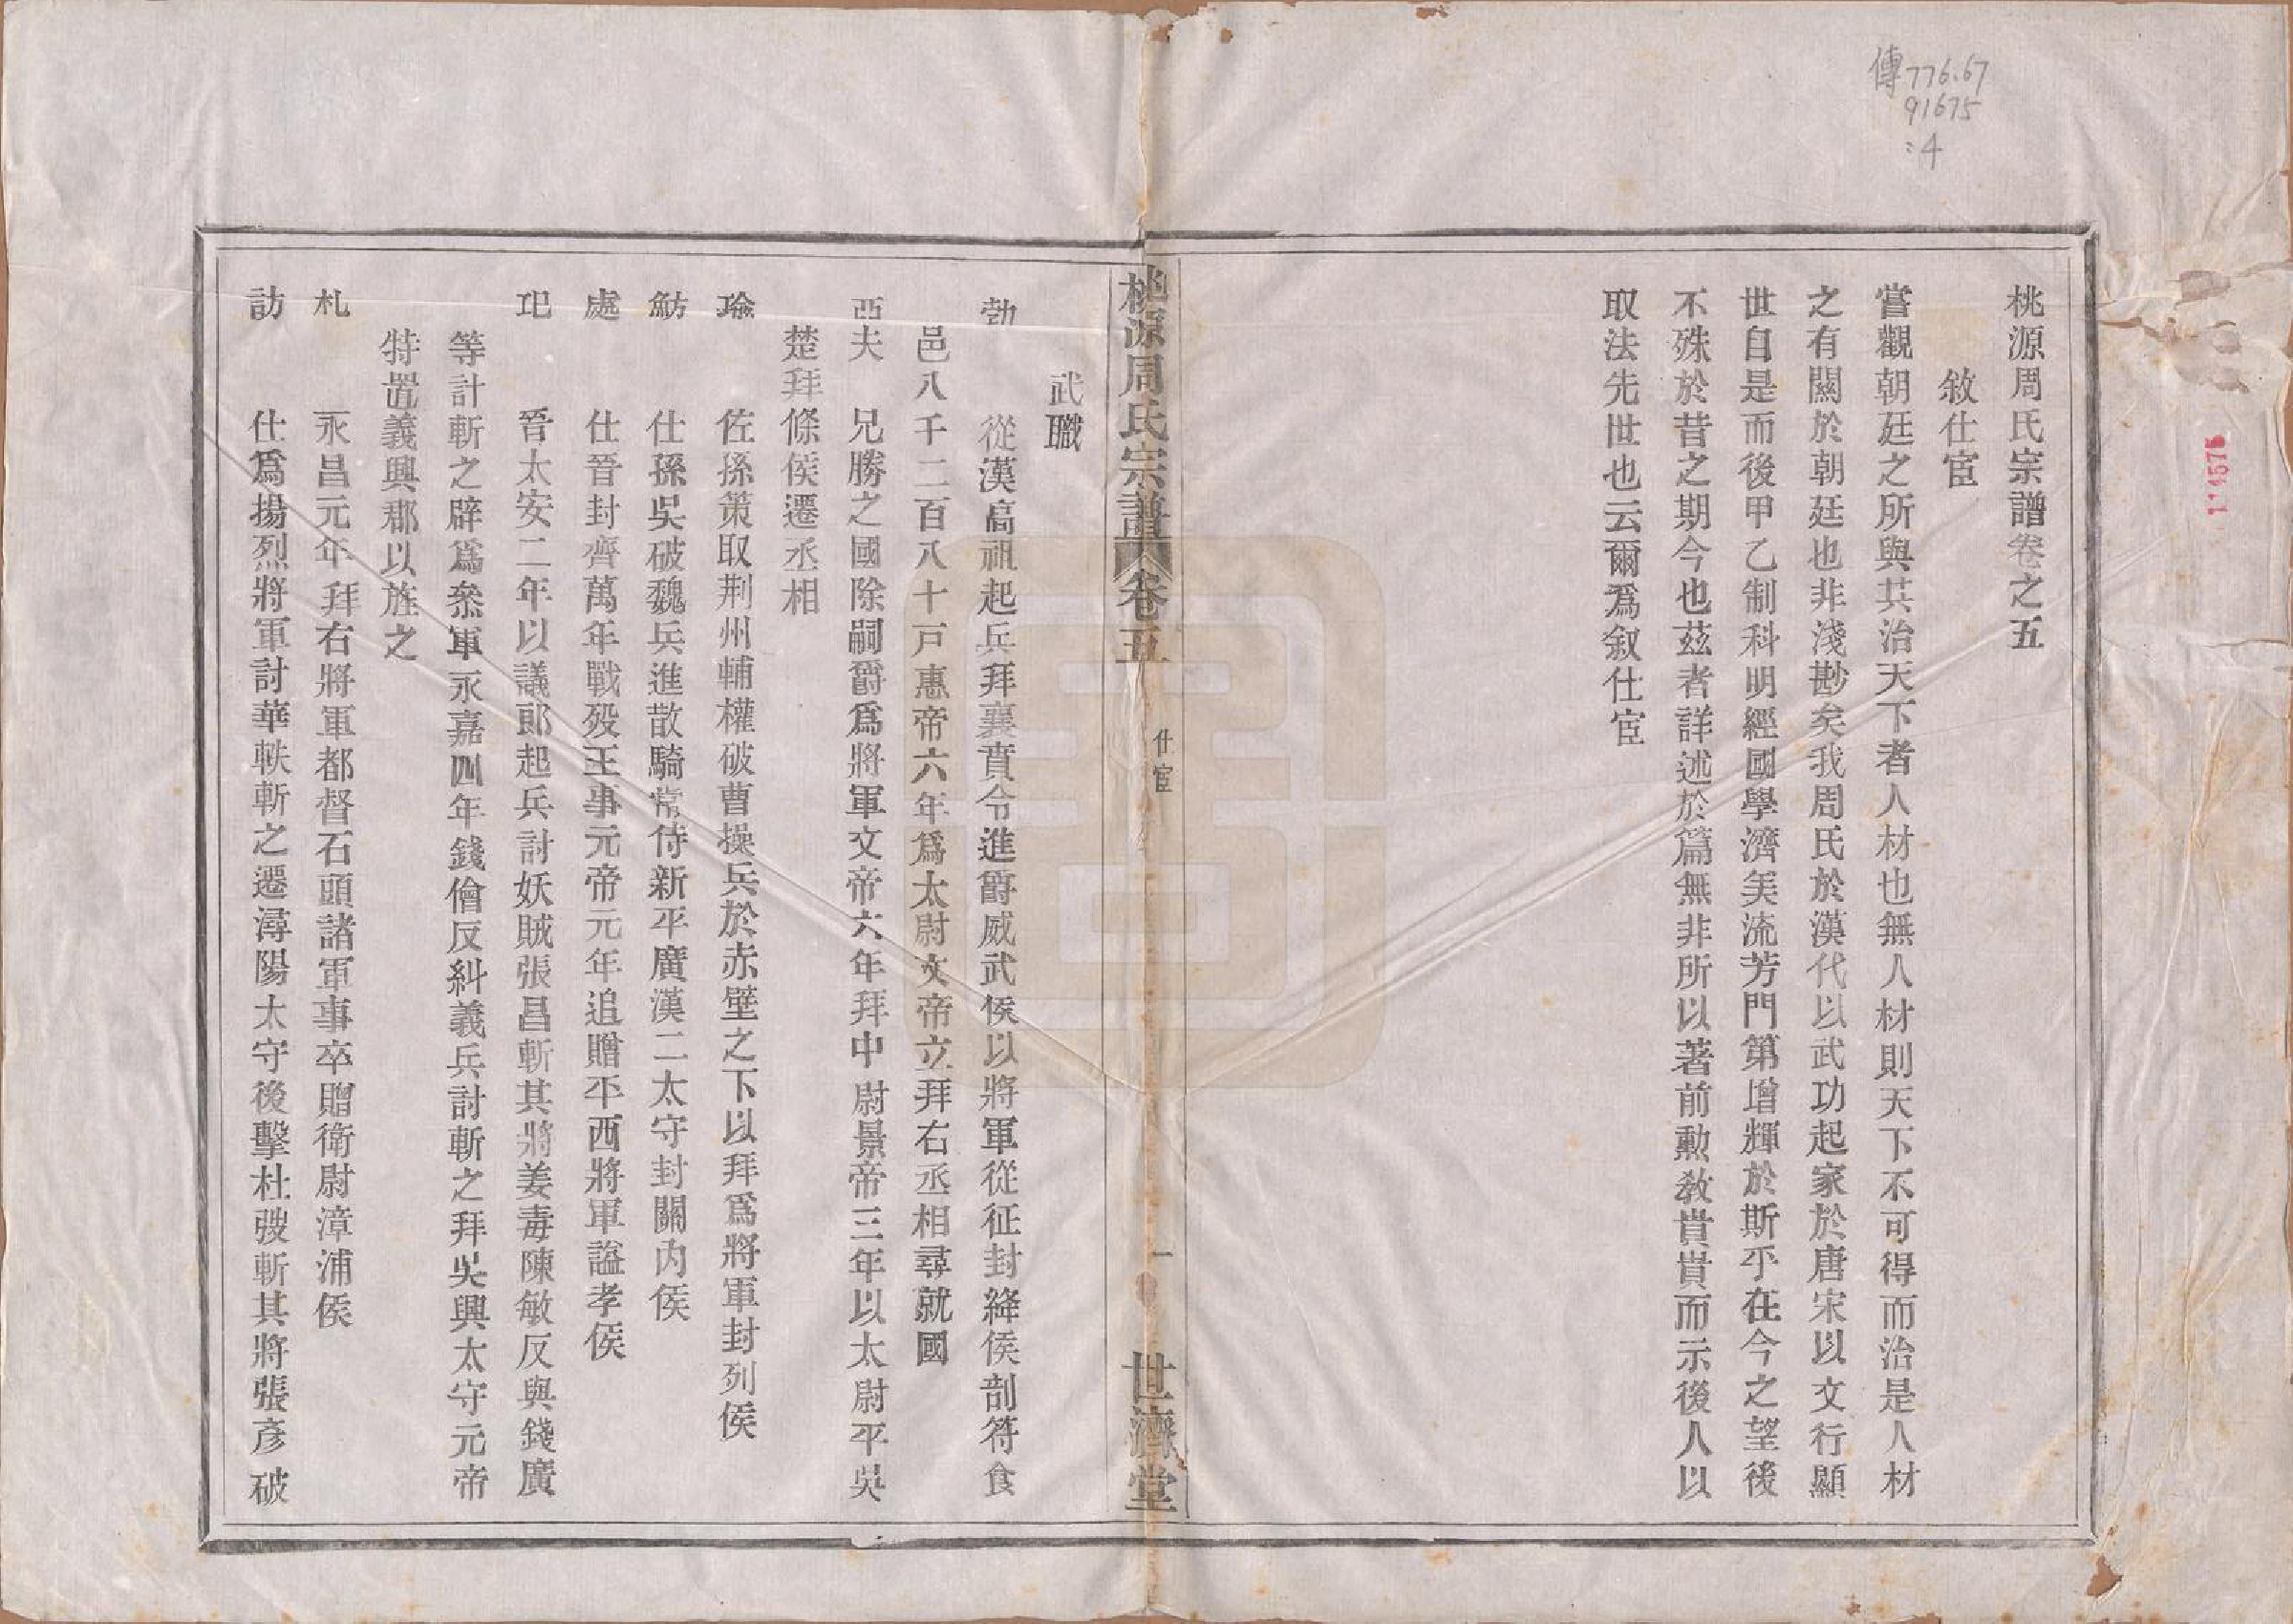 傳776.67
91675
:4
桃源周氏宗譜卷之五
敘仕宦
嘗觀朝廷之所與共治天下者人材也無人材則天下不可得而治是人材
之有關於朝廷也非淺尠矣我周氏於漢代以武功起家於唐宋以文行顯
世自是而後甲乙制科明經國學濟美流芳門第增輝於斯乎在今之望後
不殊於昔之期今也茲者詳述於篇無非所以著前勲敎貴貴而示後人以
取法先世也云爾爲敘仕宦
桃源周氏宗譜 卷五 仕宦 一 世濟堂
武職
勃 從漢高祖起兵拜襄賁令進爵威武侯以將軍從征封絳侯剖符食
邑八千二百八十戸惠帝六年爲太尉文帝立拜右丞相尋就國
亞夫 兄勝之國除嗣爵爲將軍文帝六年拜中尉景帝三年以太尉平吳
楚拜條侯遷丞相
瑜 佐孫策取荆州輔權破曹操兵於赤壁之下以拜爲將軍封列侯
魴 仕孫吳破魏兵進散騎常侍新平廣漢二太守封關內侯
處 仕晉封齊萬年戰殁王事元帝元年追贈平西將軍諡孝侯
玘 晉太安二年以議郎起兵討妖賊張昌斬其將姜毒陳敏反與錢廣
等計斬之辟爲叅軍永嘉四年錢儈反糾義兵討斬之拜吳興太守元帝
特置義興郡以旌之
札 永昌元年拜右將軍都督石頭諸軍事卒贈衛尉漳浦侯
訪 仕爲揚烈將軍討華軼斬之遷潯陽太守後擊杜弢斬其將張彥破